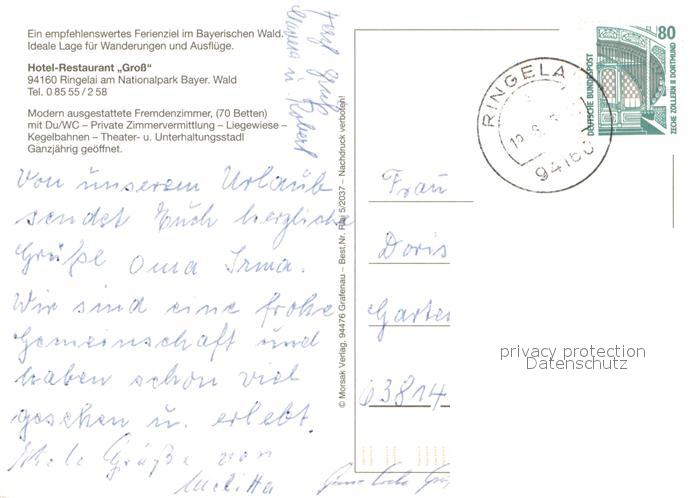 Ein empfehlenswertes Ferienziel im Bayerischen Wald.
Ideale Lage für Wanderungen und Ausflüge.
Hotel-Restaurant „Groß“
94160 Ringelai am Nationalpark Bayer. Wald
Tel. 0 85 55 / 2 58
Modern ausgestattete Fremdenzimmer, (70 Betten)
mit Du/WC – Private Zimmervermittlung – Liegewiese –
Kegelbahnen – Theater- u. Unterhaltungsstadl
Ganzjährig geöffnet.
Von unserem Urlaub
sendet Euch herzliche
Grüße Oma Irma.
Wir sind eine frohe
Gemeinschaft und
haben schon viel
gesehen u. erlebt.
Viele Grüße von
Melitta
u. Robert
© Morsak Verlag, 94476 Grafenau – Best.Nr. 5/2037 – Nachdruck verboten!
RINGELAI
94160
80
DEUTSCHE BUNDESPOST
ZECHE ZOLLERN II DORTMUND
Frau
Doris
Garten
63814
privacy protection
Datenschutz